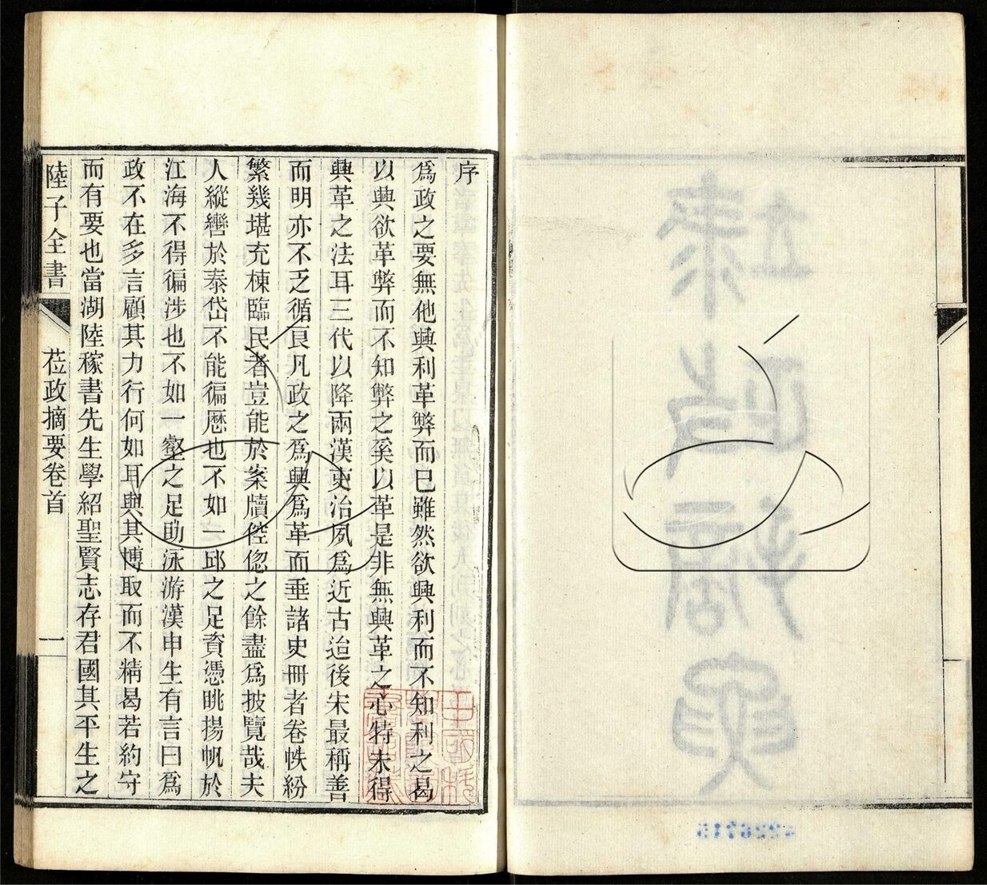 序
爲政之要無他興利革弊而已雖然欲興利而不知利之曷
以興欲革弊而不知弊之奚以革是非無興革之心特未得
興革之法耳三代以降兩漢吏治夙爲近古迨後宋最稱善
而明亦不乏循良凡政之爲興爲革而垂諸史冊者卷帙紛
繁幾堪充棟臨民者豈能於案牘倥偬之餘盡爲披覽哉夫
人縱轡於泰岱不能徧歷也不如一邱之足資憑眺揚帆於
江海不得徧涉也不如一壑之足助泳游漢申生有言曰爲
政不在多言顧其力行何如耳與其博取而不精曷若約守
而有要也當湖陸稼書先生學紹聖賢志存君國其平生之
陸子全書
莅政摘要卷首
一